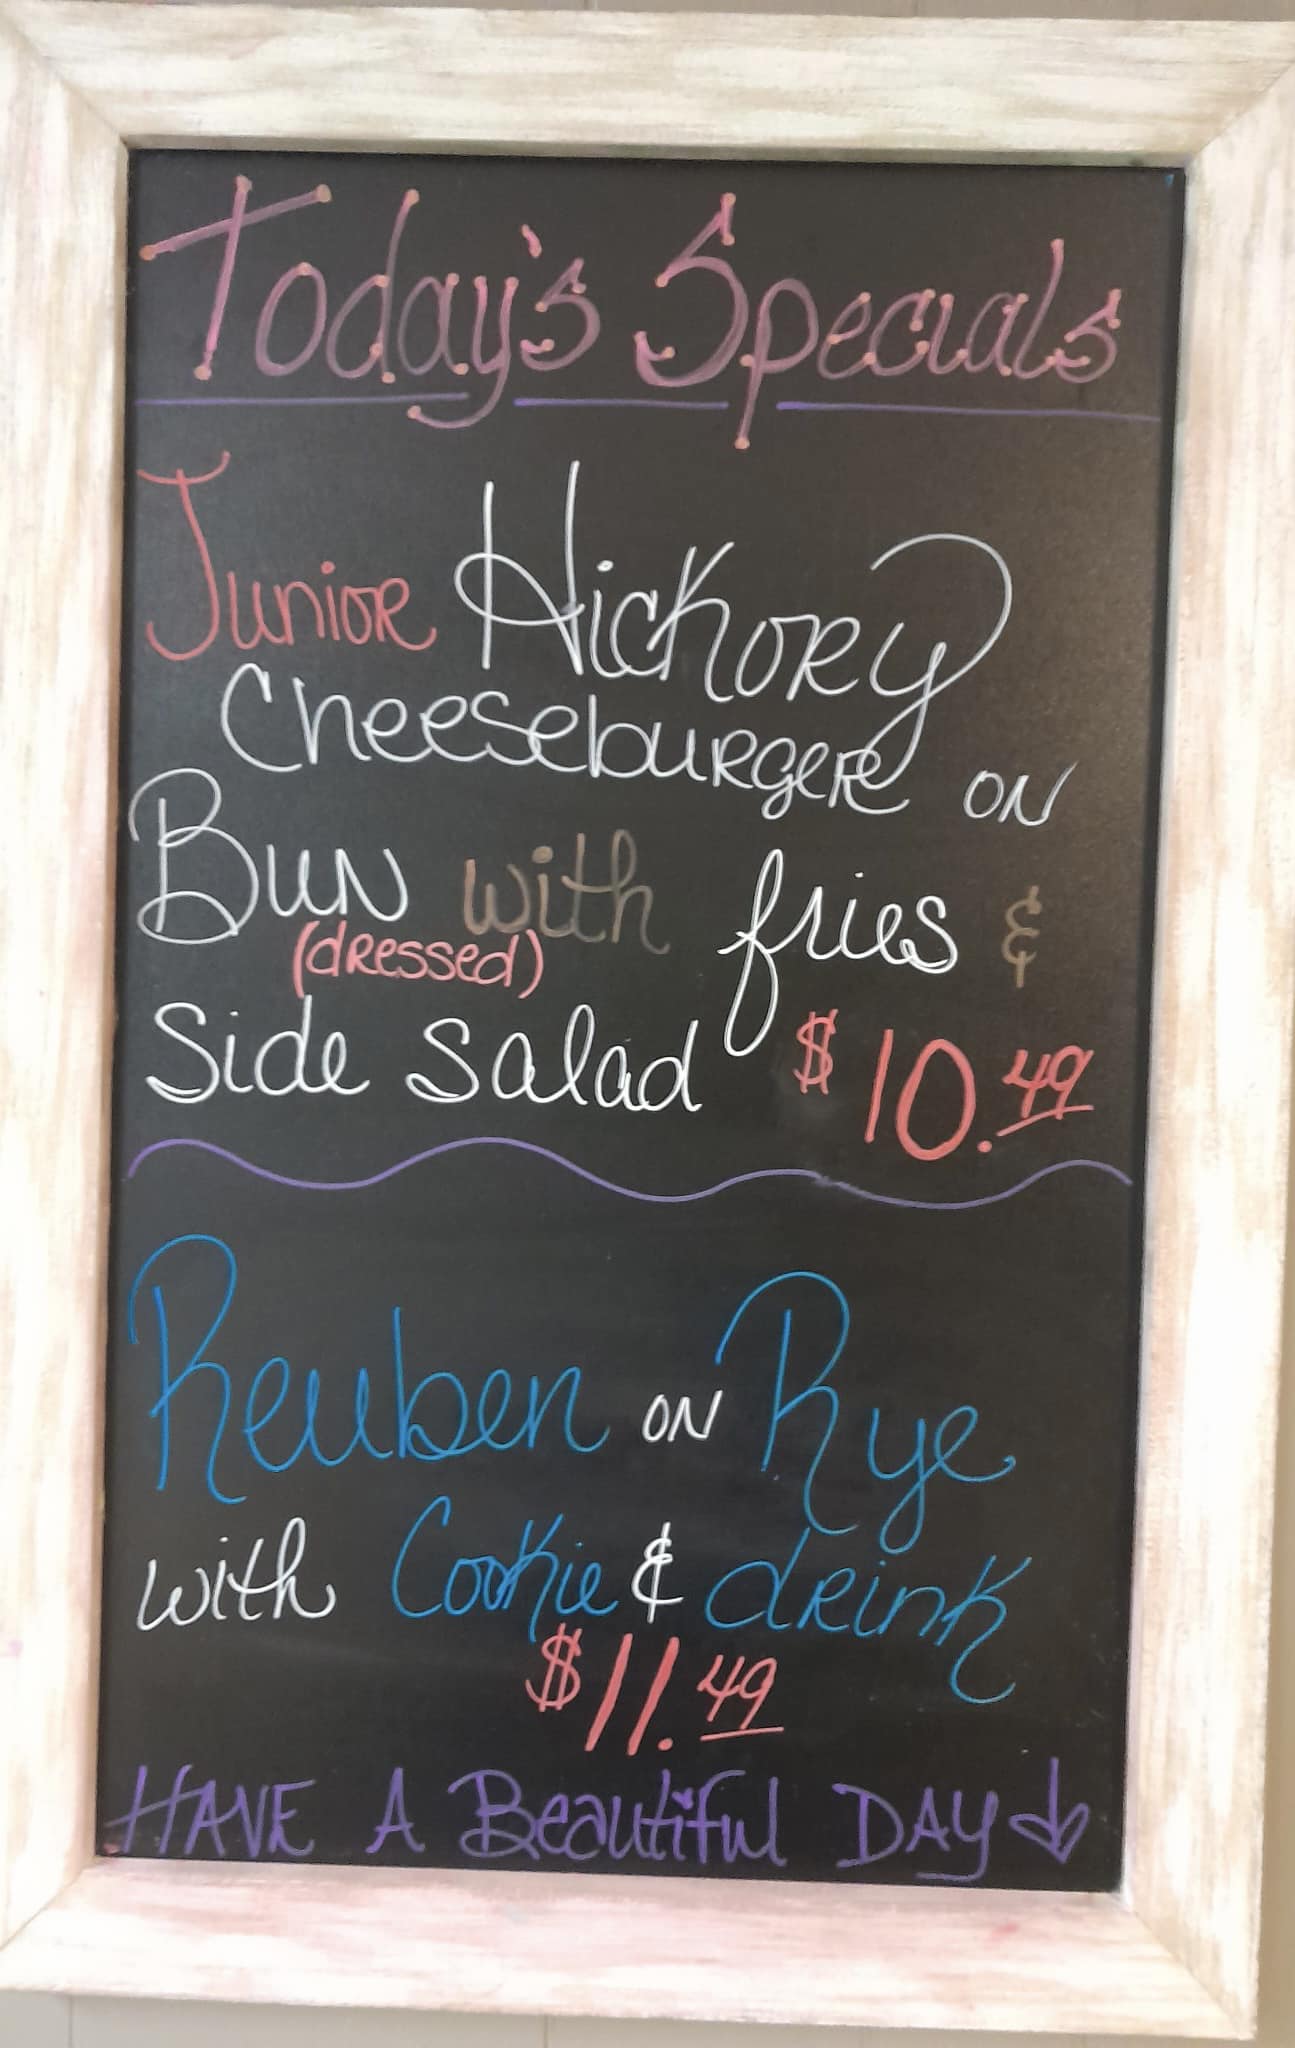 Today's Specials
Junior Hickory
Cheeseburger on
Bun with fries &
(dressed)
Side Salad $10.49
Reuben on Rye
with Cookie & drink
$11.49
HAVE A Beautiful DAY